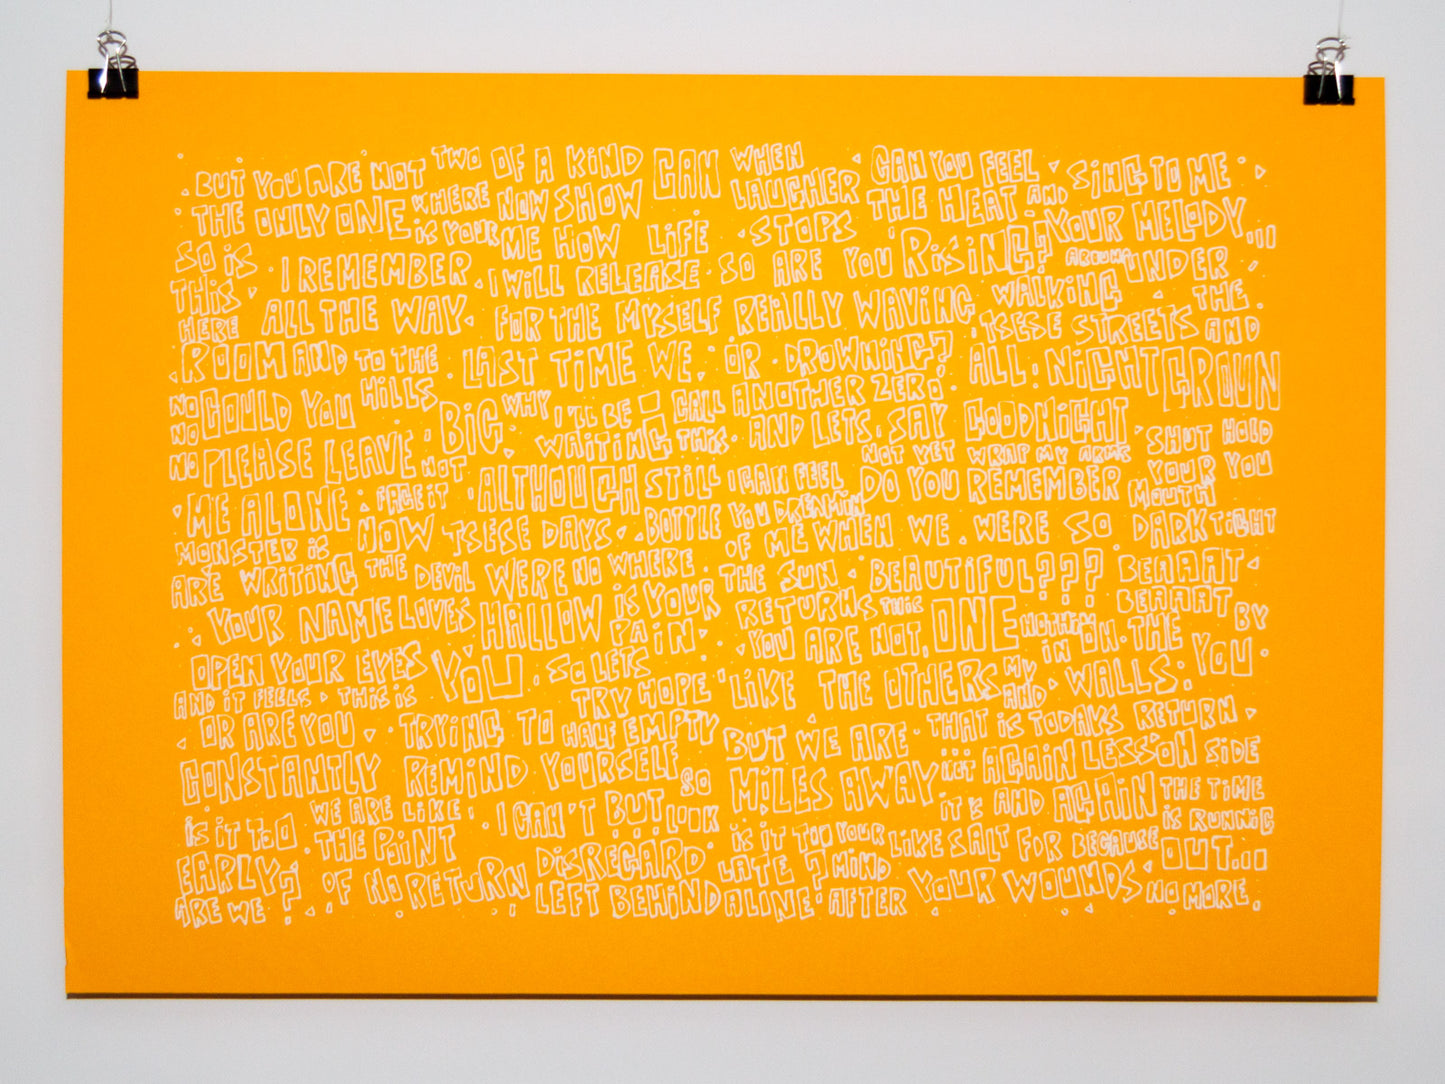 BUT YOU ARE NOT TWO OF A KIND CAN WHEN CAN YOU FEEL SING TO ME
THE ONLY ONE WHERE NOW SHOW LAUGHER THE HEAT AND YOUR MELODY...
SO IS IS YOUR ME HOW LIFE STOPS RISING? AROUND UNDER
THIS I REMEMBER I WILL RELEASE SO ARE YOU WALKING THE
HERE ALL THE WAY FOR THE MYSELF REALLY WAVING TSESE STREETS AND
ROOM AND TO THE LAST TIME WE OR DROWNING? ALL NIGHT GROUN
NO COULD YOU HILLS BIG WHY I'LL BE CALL ANOTHER ZERO GOODNIGHT
NO PLEASE LEAVE NOT WAITING THIS AND LETS SAY NOT YET WRAP MY ARMS SHUT HOLD
NO ME ALONE FACE IT ALTHOUGH STILL I CAN FEEL DO YOU REMEMBER YOUR YOU
MONSTER IS NOW TSESE DAYS BOTTLE YOU DREAMIN WHEN WE WERE SO MOUTH DARK TIGHT
ARE WRITING THE DEVIL WERE NO WHERE OF ME THE SUN BEAUTIFUL??? BEAAAT
YOUR NAME LOVES HALLOW IS YOUR RETURNS THIS ONE NOTHIN ON THE BEAAAT BY
OPEN YOUR EYES YOU SO LETS PAIN YOU ARE NOT, IN WALLS: YOU
AND IT FEELS THIS IS TRY HOPE LIKE THE OTHERS MY AND
OR ARE YOU TRYING TO HALF EMPTY BUT WE ARE THAT IS TODAYS RETURN
CONSTANTLY REMIND YOURSELF SO MILES AWAY ... NOT AGAIN LESSON SIDE
IS IT TOO WE ARE LIKE I CAN'T BUT LOOK IT'S AND AGAIN THE TIME
EARLY? THE POINT DISREGARD IS IT TOO YOUR LIKE SALT FOR BECAUSE IS RUNNIG
ARE WE OF NO RETURN LEFT BEHIND LATE? MIND YOUR WOUNDS OUT...
ALINE AFTER NO MORE.